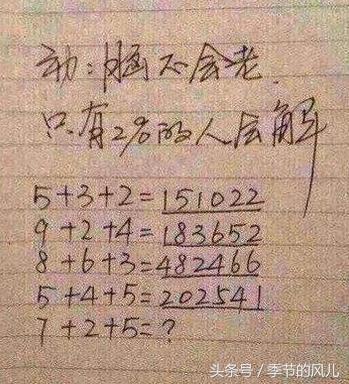 动:脑不会老.
只有2%的人会解
5+3+2=151022
9+2+4=183652
8+6+3=482466
5+4+5=202541
7+2+5=?
头条号／季节的风儿